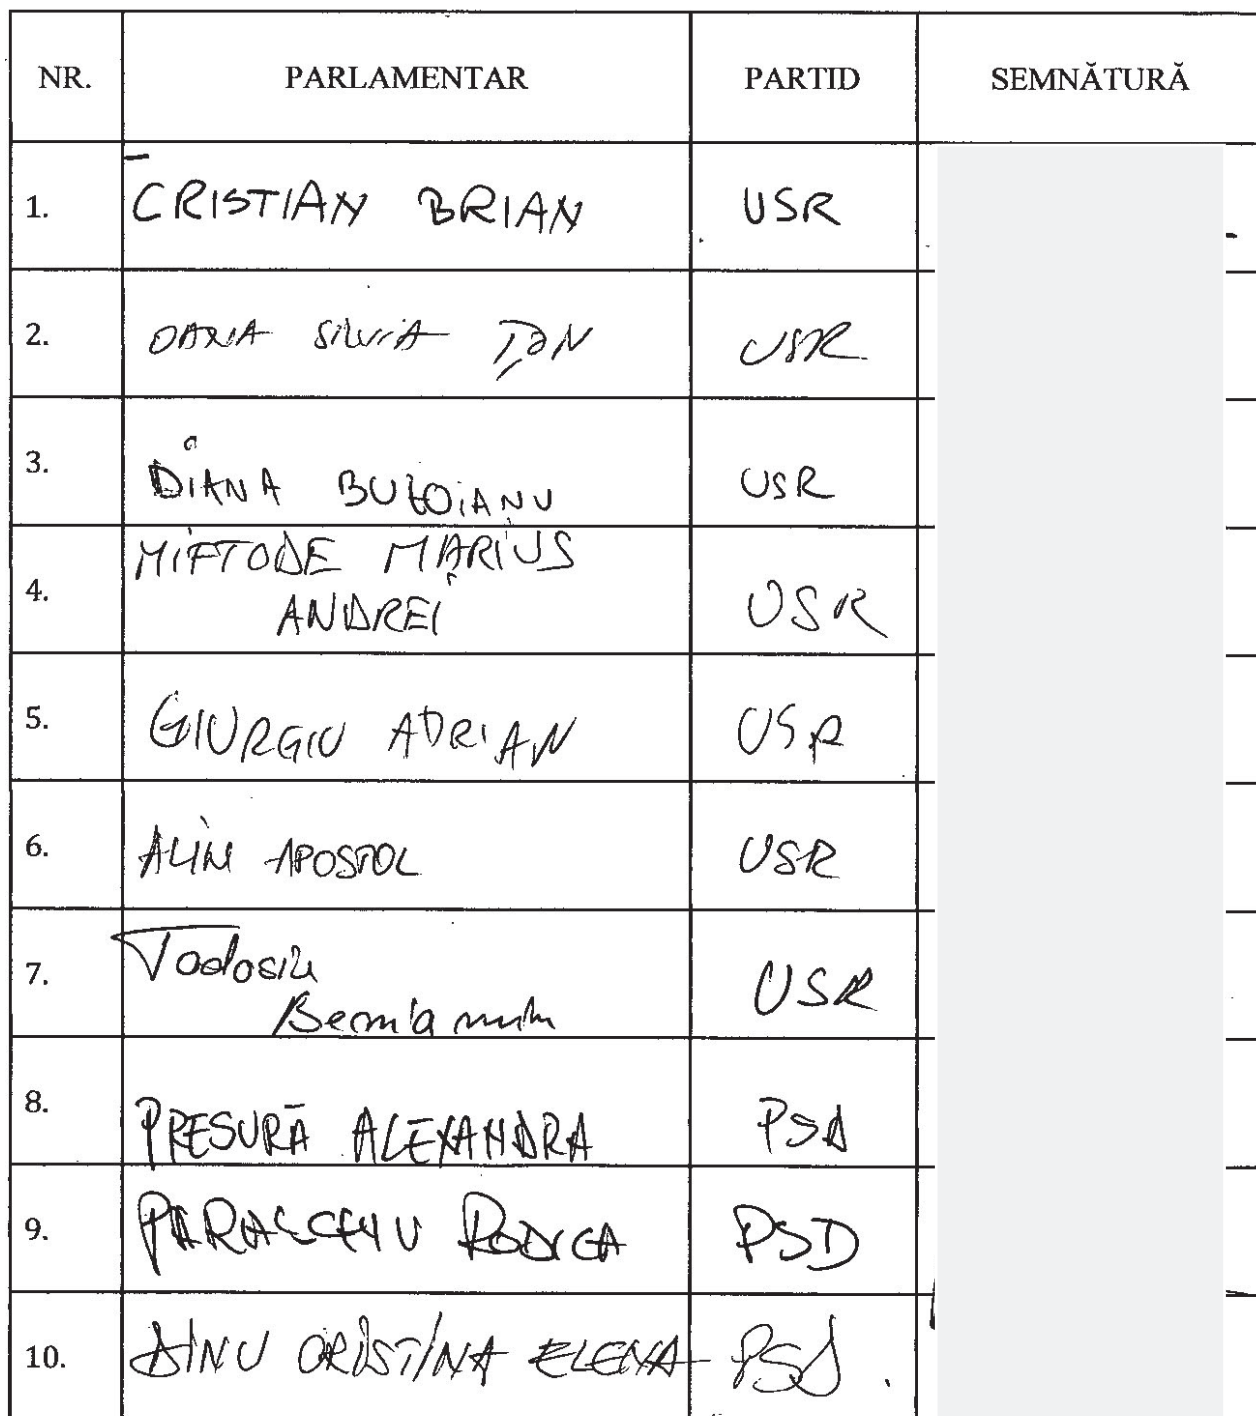 NR. PARLAMENTAR PARTID SEMNĂTURĂ
1. CRISTIAN BRIAN USR
2. OANA SILVIA ȚON USR
3. DIANA BUZOIANU USR
4. MIFTODE MARIUS USR
ANDREI
5. GIURGIU ADRIAN USR
6. ALIN APOSTOL USR
7. Todosiu USR
Beniamin
8. PRESURĂ ALEXANDRA PSD
9. PARASCHIV RODICA PSD
10. DINU CRISTINA ELENA PSD.